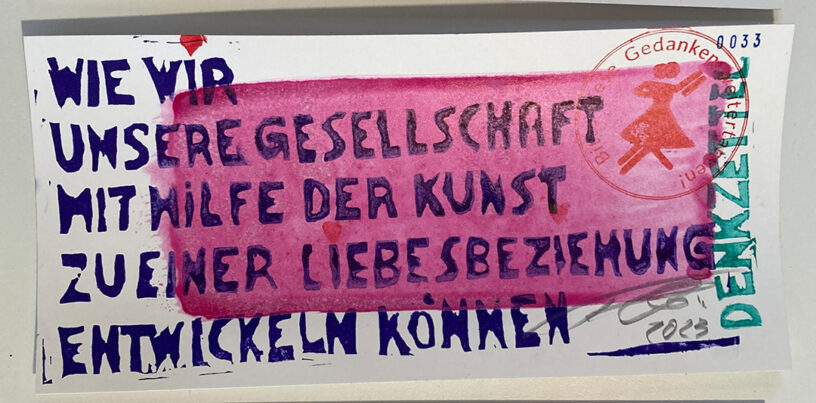 WIE WIR
UNSERE GESELLSCHAFT
MIT HILFE DER KUNST
ZU EINER LIEBESBEZIEHUNG
ENTWICKELN KÖNNEN
0033
Gedanken weitertanzen!
DENKZETTEL
2023